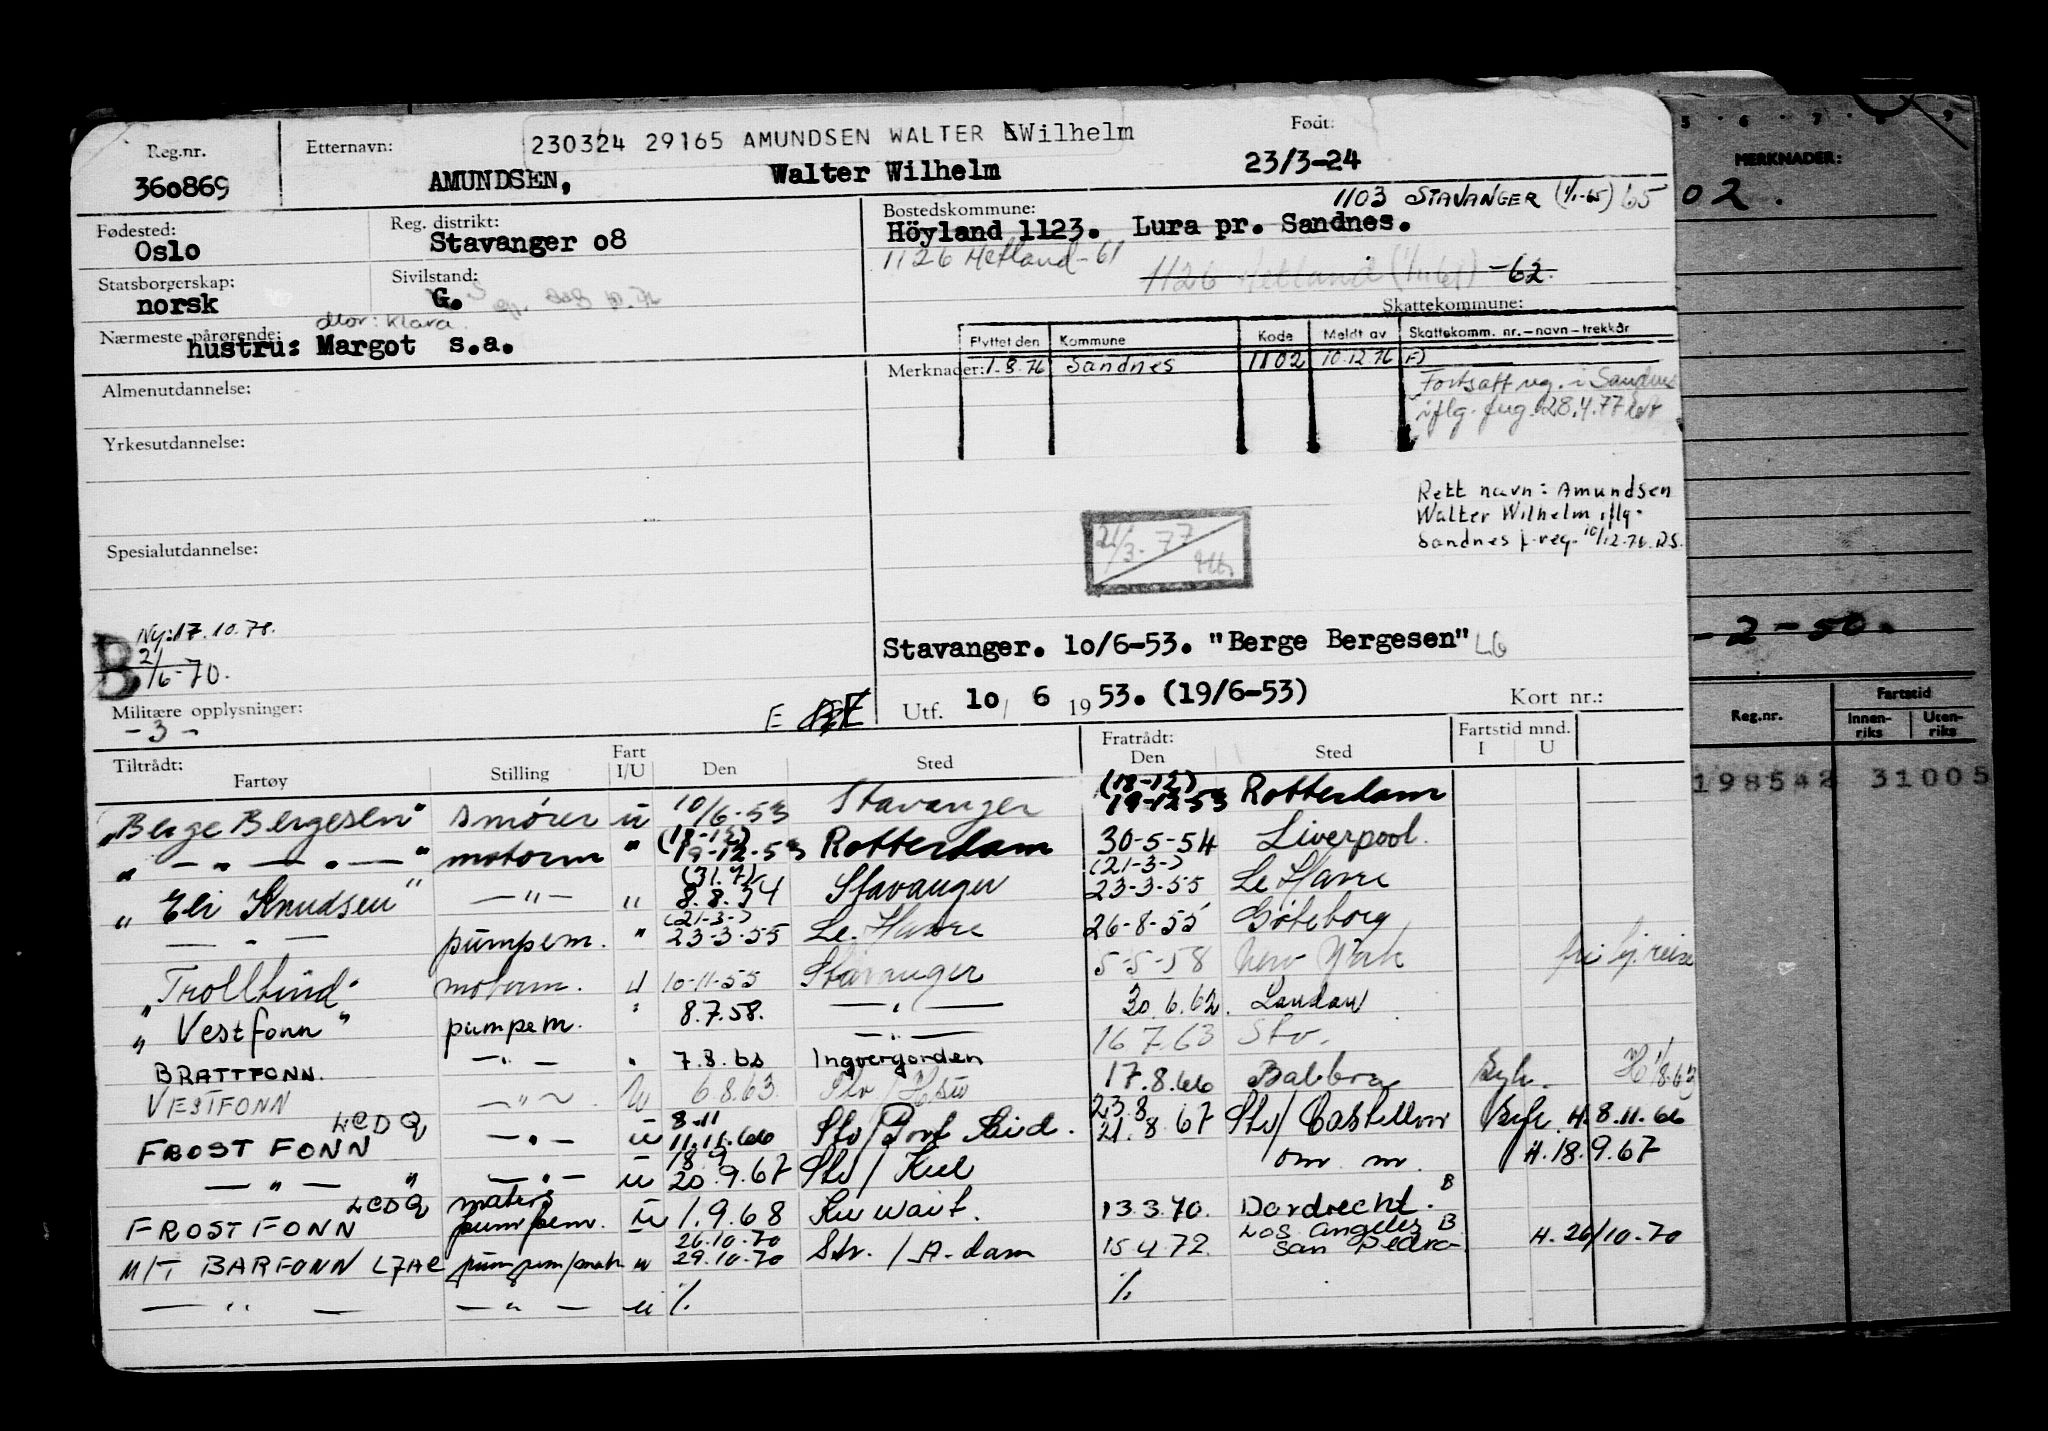 230324 29165 AMUNDSEN WALTER Wilhelm
Reg.nr. Etternavn: Født:
360869 AMUNDSEN, Walter Wilhelm 23/3-24
1103 STAVANGER (1/1-65) 65
Fødested: Reg. distrikt: Bostedskommune:
Oslo Stavanger o8 Höyland 1123. Lura pr. Sandnes.
1126 Hetland-61
1126 Hetland (1/1 61) -62.
Statsborgerskap: Sivilstand:
norsk G.
Skattekommune:
Nærmeste pårørende: Mor: Klara
hustru: Margot s.a.
Flyttet den Kommune Kode Meldt av Skattekomm. nr.-navn-trekkår
Merknader: 1.8.76 Sandnes 1102 10.12.76
Fortsatt reg. i Sandnes
iflg. 28.4.77
Almenutdannelse:
Yrkesutdannelse:
Rett navn: Amundsen
Walter Wilhelm iflg.
Sandnes f.reg. 10/12-76. RS.
21/3-77
Spesialutdannelse:
Ny: 17.10.78.
B 21/6-70.
Stavanger. 10/6-53. "Berge Bergesen" LG
Militære opplysninger:
- 3 -
E
Utf. 10 / 6 1953. (19/6-53) Kort nr.:
Tiltrådt: Fratrådt: Fartstid mnd.
Fartøy Stilling Fart I/U Den Sted Den Sted I U
"Berge Bergesen" smører u 10/6-53 Stavanger (18-12) 19-12-53 Rotterdam
" — " — " — " motorm " (18-12) 19-12-53 Rotterdam 30-5-54 Liverpool.
" Eli Knudsen " — " — " (31.7) 8.8.54 Stavanger (21-3-) 23-3-55 Le Havre
— " — pumpem. " (21-3-) 23-3-55 Le. Havre 26-8-55 Göteborg
" Trolltind " motorm. u 10-11-55 Stavanger 5-5-58 New York fri hj.reise
" Vestfonn " pumpem. " 8.7.58. — " — 30.6.62. London
BRATTFONN. — " — " 7.8.62 — " — 16 7.63 Stv.
Ingvergorden
VESTFONN — " — u 6.8.63. Stv / 17.8.66 Balboa Syk. H 1/8.63
FROST FONN LCDQ — " — u 8-11 11.11.66 Stv / Port Said. 23.8 21.8.67 Stv / Castellon Syk. H.8.11.66
— " — " — " — u 18.9 20.9.67 Stv / Kiel om m. H.18.9.67
FROST FONN LCDQ pumpem. u 1.9.68 Kuwait. 13.3.70. Dordrecht. B
M/T BARFONN pumpem/ u 26.10.70 29.10.70 Stv. / A-dam 15.4.72. Los Angeles B San Pedro H. 26/10-70
— " — — " — u %. %.
5 6 7 8 9
MERKNADER:
02.
-2-50.
Reg.nr. Fartstid
Innenriks Utenriks
198542 31005